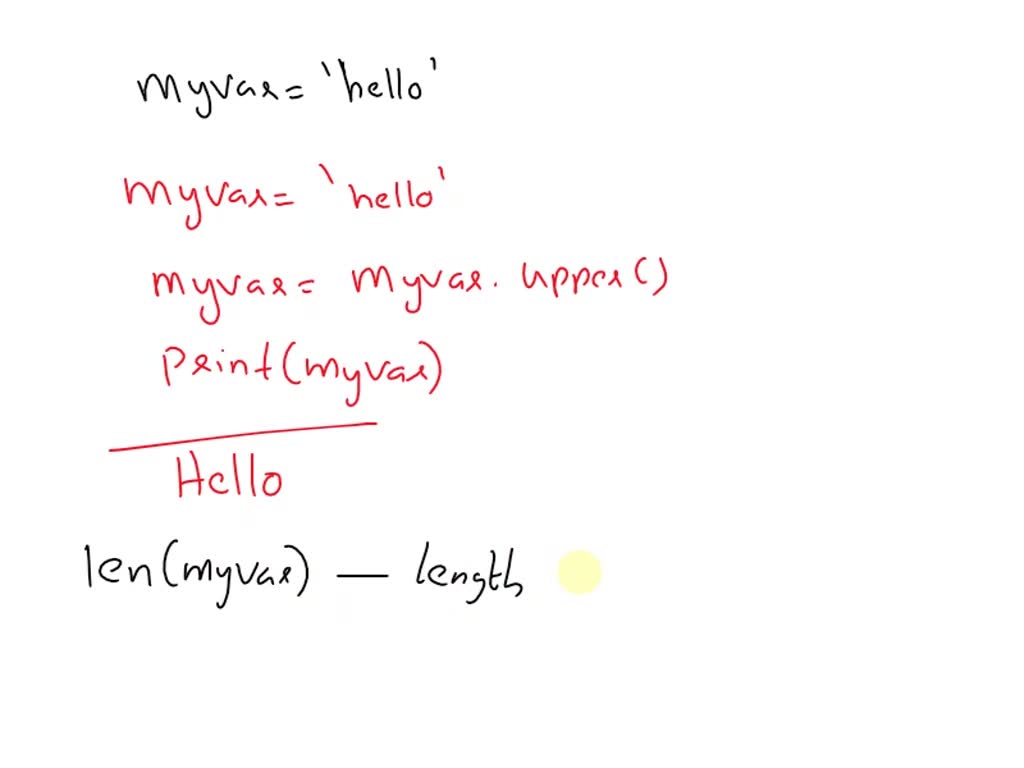 myvar= 'hello'
myvar= 'hello'
myvar= myvar. upper()
print(myvar)
Hello
len(myvar) — length